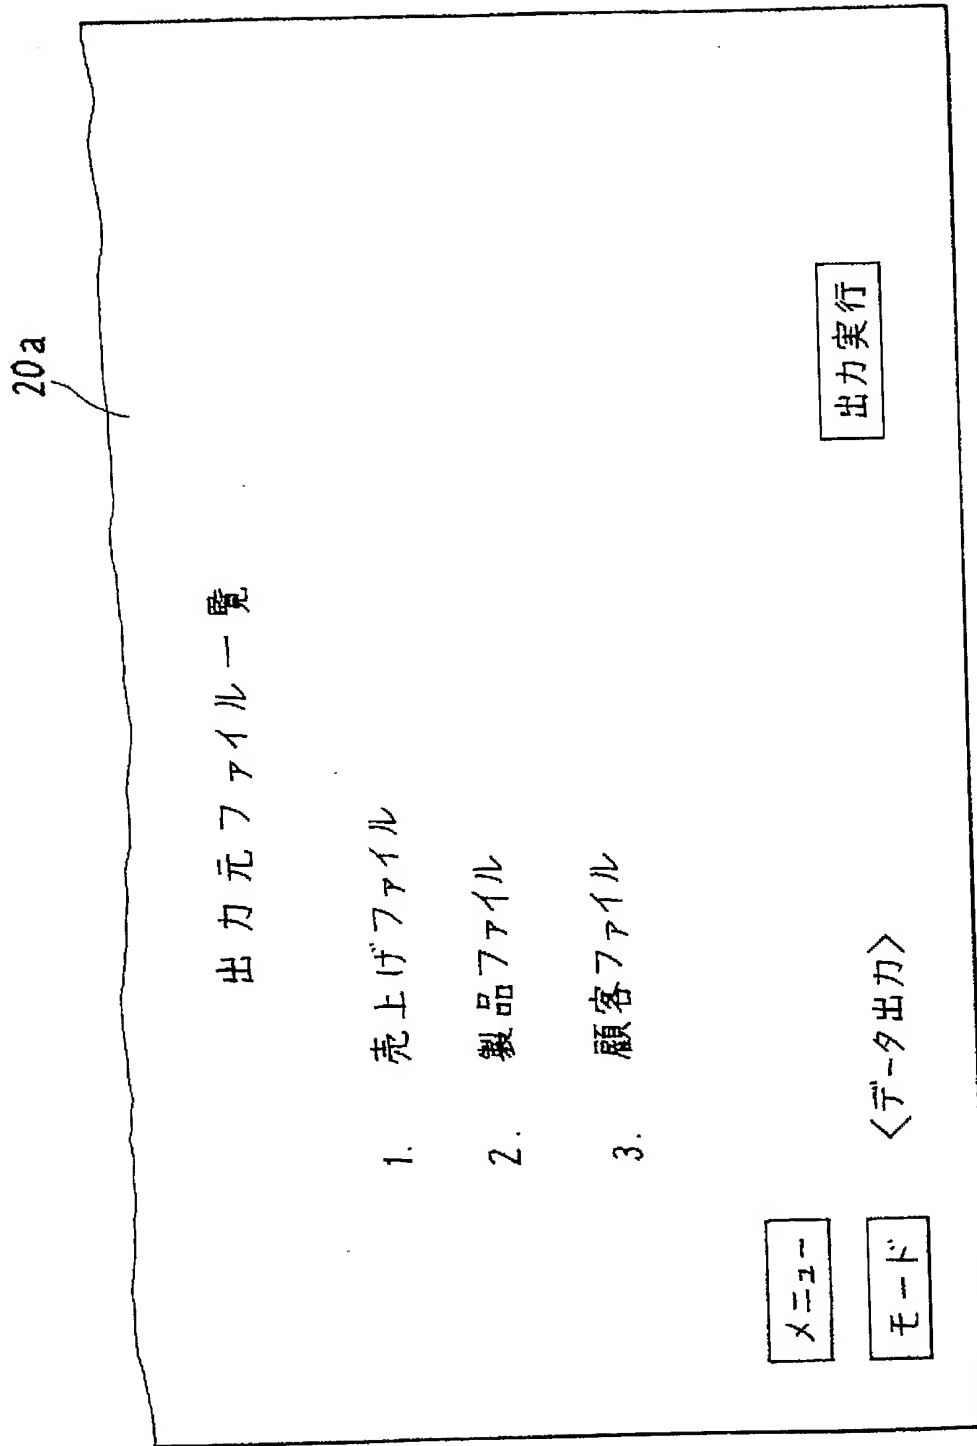 20a
出力元ファイル一覧
1. 売上げファイル
2. 製品ファイル
3. 顧客ファイル
メニュー
モード <データ出力> 出力実行